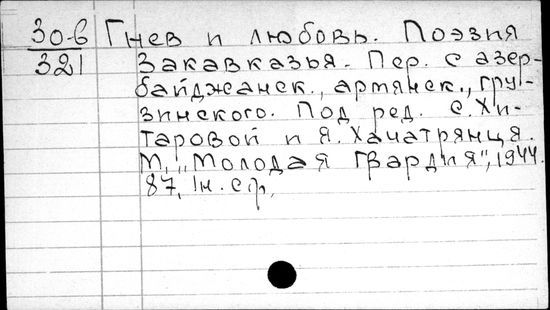 30-6 Гнев и любовь. Поэзия
321 Закавказья. Пер. с азер-
байджанск., армянск., гру-
зинского. Под ред. С. Хи-
таровой и Я. Хачатрянца.
М, "Молодая Гвардия", 1944.
87, Iн. с.